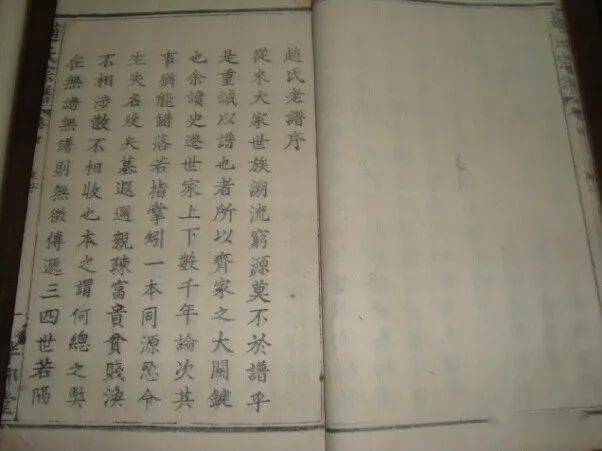 趙氏老譜序
從來大家世族溯流窮源莫不於譜乎
是重誠以譜也者所以齊家之大關鍵
也余讀史遷世家上下數千年論次其
事猶能錯落若指掌矧一本同源忍令
生失名歿失墓遐邇親疎富貴貧賤渙
不相涉散不相收也本之謂何總之獘
在無譜無譜則無徵傳遞三四世若隔
趙氏宗譜